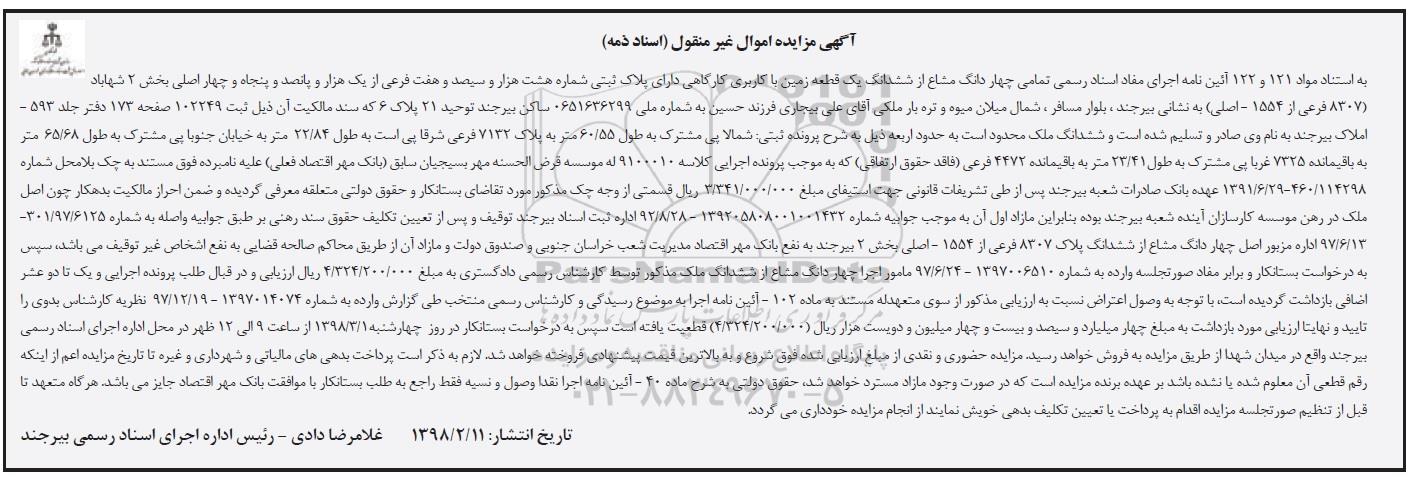 آگهی مزایده اموال غیر منقول (اسناد ذمه)
به استناد مواد ۱۲۱ و ۱۲۲ آئین نامه اجرای مفاد اسناد رسمی تمامی چهار دانگ مشاع از ششدانگ یک قطعه زمین با کاربری کارگاهی دارای پلاک ثبتی شماره هشت هزار و سیصد و هفت فرعی از یک هزار و پانصد و پنجاه و چهار اصلی بخش ۲ شهاباد
(۸۳۰۷ فرعی از ۱۵۵۴ - اصلی) به نشانی بیرجند ، بلوار مسافر ، شمال میلان میوه و تره بار ملکی آقای علی بیجاری فرزند حسین به شماره ملی ۰۶۵۱۶۳۶۲۹۹ ساکن بیرجند توحید ۲۱ پلاک ۶ که سند مالکیت آن ذیل ثبت ۱۰۲۲۴۹ صفحه ۱۷۳ دفتر جلد ۵۹۳ -
املاک بیرجند به نام وی صادر و تسلیم شده است و ششدانگ ملک محدود است به حدود اربعه ذیل به شرح پرونده ثبتی: شمالا پی مشترک به طول ۶۰/۵۵ متر به پلاک ۷۱۳۲ فرعی شرقا پی است به طول ۲۲/۸۴ متر به خیابان جنوبا پی مشترک به طول ۶۵/۶۸ متر
به باقیمانده ۷۳۲۵ غربا پی مشترک به طول۲۳/۴۱ متر به باقیمانده ۴۴۷۲ فرعی (فاقد حقوق ارتفاقی) که به موجب پرونده اجرایی کلاسه ۹۱۰۰۰۱۰ له موسسه قرض الحسنه مهر بسیجیان سابق (بانک مهر اقتصاد فعلی) علیه نامبرده فوق مستند به چک بلامحل شماره
۱۳۹۱/۶/۲۹-۴۶۰/۱۱۴۲۹۸ عهده بانک صادرات شعبه بیرجند پس از طی تشریفات قانونی جهت استیفای مبلغ ۳/۳۴۱/۰۰۰/۰۰۰ ریال قسمتی از وجه چک مذکور مورد تقاضای بستانکار و حقوق دولتی متعلقه معرفی گردیده و ضمن احراز مالکیت بدهکار چون اصل
ملک در رهن موسسه کارسازان آینده شعبه بیرجند بوده بنابراین مازاد اول آن به موجب جوابیه شماره ۱۳۹۲۰۵۸۰۸۰۰۱۰۰۱۴۳۲ - ۹۲/۸/۲۸ اداره ثبت اسناد بیرجند توقیف و پس از تعیین تکلیف حقوق سند رهنی بر طبق جوابیه واصله به شماره ۳۰۱/۹۷/۶۱۲۵-
۹۷/۶/۱۳ اداره مزبور اصل چهار دانگ مشاع از ششدانگ پلاک ۸۳۰۷ فرعی از ۱۵۵۴ - اصلی بخش ۲ بیرجند به نفع بانک مهر اقتصاد مدیریت شعب خراسان جنوبی و صندوق دولت و مازاد آن از طریق محاکم صالحه قضایی به نفع اشخاص غیر توقیف می باشد، سپس
به درخواست بستانکار و برابر مفاد صورتجلسه وارده به شماره ۱۳۹۷۰۰۶۵۱۰ - ۹۷/۶/۲۴ مامور اجرا چهار دانگ مشاع از ششدانگ ملک مذکور توسط کارشناس رسمی دادگستری به مبلغ ۴/۳۲۴/۲۰۰/۰۰۰ ریال ارزیابی و در قبال طلب پرونده اجرایی و یک تا دو عشر
اضافی بازداشت گردیده است، با توجه به وصول اعتراض نسبت به ارزیابی مذکور از سوی متعهدله مستند به ماده ۱۰۲ - آئین نامه اجرا به موضوع رسیدگی و کارشناس رسمی منتخب طی گزارش وارده به شماره ۱۳۹۷۰۱۴۰۷۴ - ۹۷/۱۲/۱۹ نظریه کارشناس بدوی را
تایید و نهایتا ارزیابی مورد بازداشت به مبلغ چهار میلیارد و سیصد و بیست و چهار میلیون و دویست هزار ریال (۴/۳۲۴/۲۰۰/۰۰۰) قطعیت یافته است سپس به درخواست بستانکار در روز چهارشنبه۱۳۹۸/۳/۱ از ساعت ۹ الی ۱۲ ظهر در محل اداره اجرای اسناد رسمی
بیرجند واقع در میدان شهدا از طریق مزایده به فروش خواهد رسید. مزایده حضوری و نقدی از مبلغ ارزیابی شده فوق شروع و به بالاترین قیمت پیشنهادی فروخته خواهد شد. لازم به ذکر است پرداخت بدهی های مالیاتی و شهرداری و غیره تا تاریخ مزایده اعم از اینکه
رقم قطعی آن معلوم شده یا نشده باشد بر عهده برنده مزایده است که در صورت وجود مازاد مسترد خواهد شد، حقوق دولتی به شرح ماده ۴۰ - آئین نامه اجرا نقدا وصول و نسیه فقط راجع به طلب بستانکار با موافقت بانک مهر اقتصاد جایز می باشد. هرگاه متعهد تا
قبل از تنظیم صورتجلسه مزایده اقدام به پرداخت یا تعیین تکلیف بدهی خویش نمایند از انجام مزایده خودداری می گردد.
تاریخ انتشار: ۱۳۹۸/۲/۱۱ غلامرضا دادی - رئیس اداره اجرای اسناد رسمی بیرجند
ParsNamadData
مرکز فرآوری اطلاعات پارس نماد داده ها
پایگاه اطلاع رسانی مناقصه و مزایده
۰۲۱-۸۸۳۴۹۶۷۰-۵